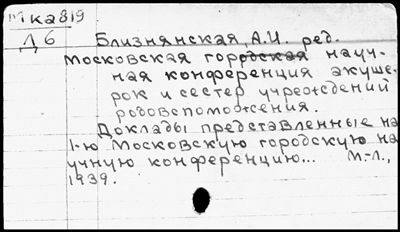 Мка819
Д6
Близнянская, А.И. ред.
Московская городская науч-
ная конференция акуше-
рок и сестер учреждений
родовспоможения.
Доклады представленные на
1-ю Московскую городскую на
учную конференцию... М.-Л.,
1939.